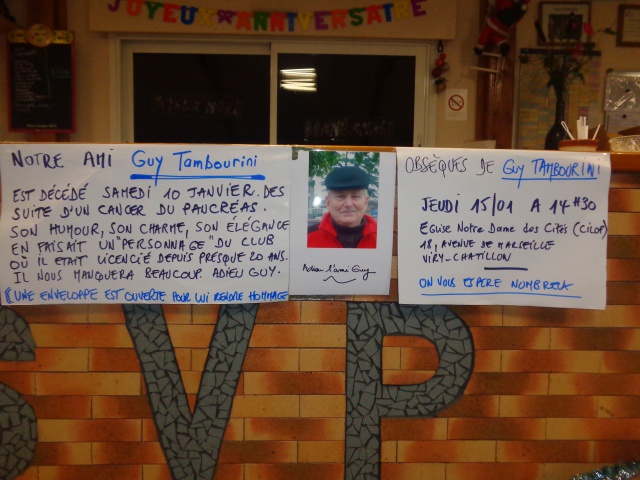 JOYEUX ANNIVERSAIRE
NOTRE AMI Guy Tambourini
EST DÉCÉDÉ SAMEDI 10 JANVIER. DES
SUITE D'UN CANCER DU PAUCRÉAS.
SON HUMOUR, SON CHARME, SON ÉLÉGANCE
EN FAISAIT UN "PERSONNAGE" DU CLUB
OÙ IL ETAIT LICENCIÉ DEPUIS PRESQUE 20 ANS.
IL NOUS MANQUERA BEAUCOUP. ADIEU GUY.
UNE ENVELOPPE EST OUVERTE POUR LUI RENDRE HOMMAGE
Adieu l'ami Guy
OBSÈQUES DE GUY TAMBOURINI
JEUDI 15/01 A 14H30
Eglise Notre Dame des Cités (CILOF)
18, AVENUE DE MARSEILLE
VIRY-CHATILLON
ON VOUS ESPÈRE NOMBREUX
SVP